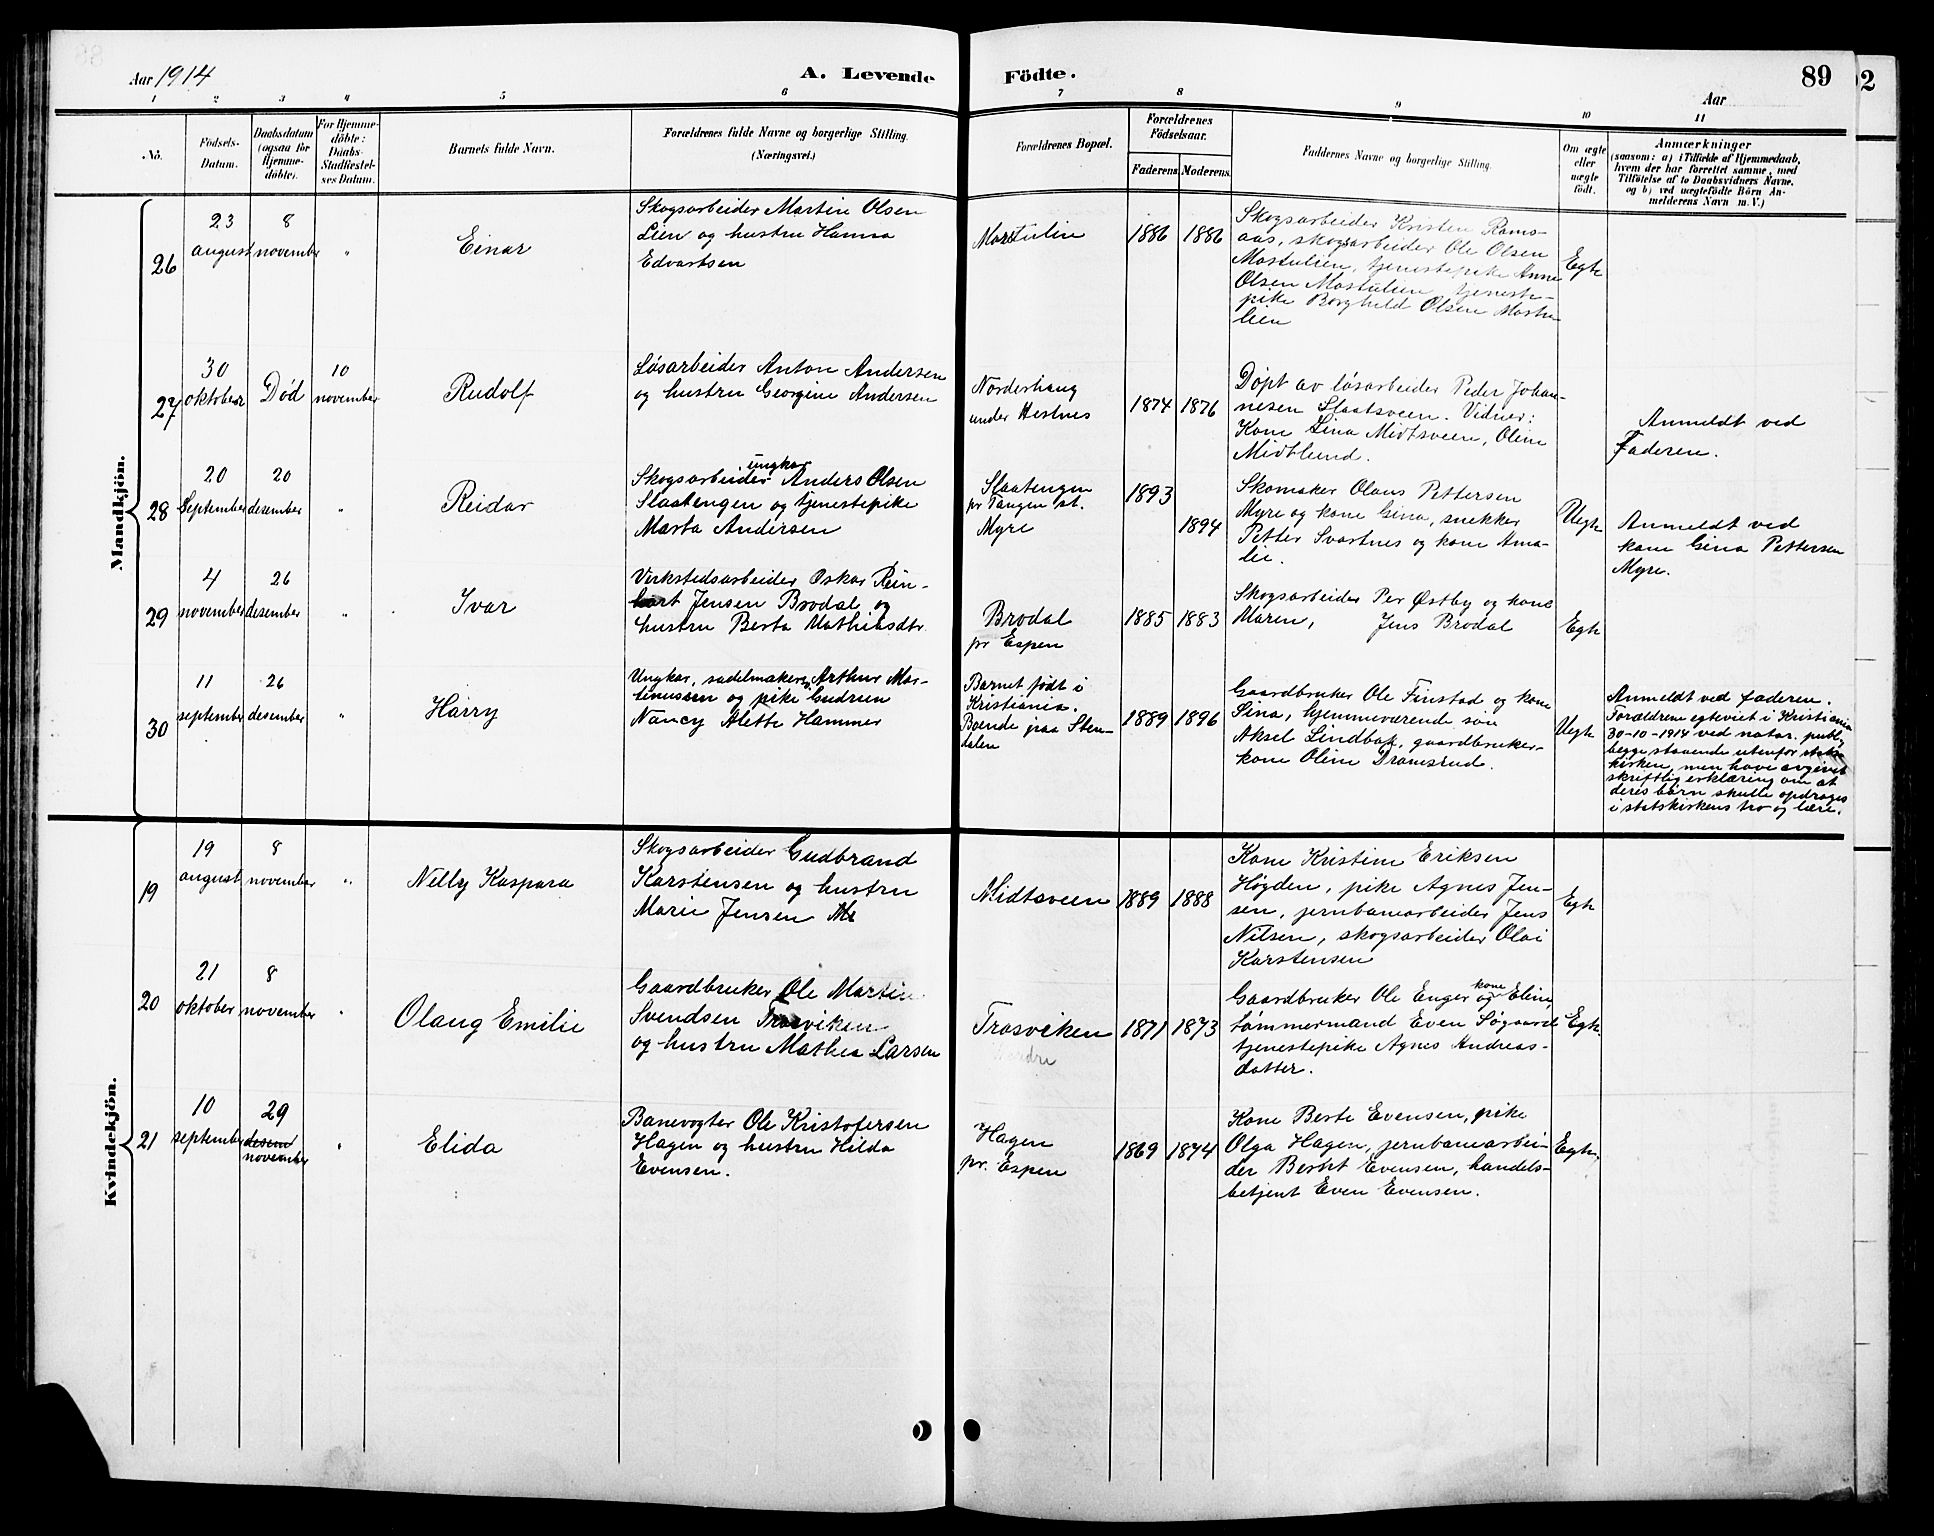 Aar 1914
A. Levende
Födte.
89
Aar
92
1 2 3 4 5 6 7 8 9 10 11
No.
Födsels-
Datum.
Daabsdatum
(ogsaa for
Hjemme-
döbte).
For Hjemme-
döbte:
Daabs-
Stadfæstel-
ses Datum.
Barnets fulde Navn.
Forældrenes fulde Navne og borgerlige Stilling.
(Næringsvei.)
Forældrenes Bopæl.
Forældrenes
Födselsaar.
Faderens
Moderens
Faddernes Navne og borgerlige Stilling.
Om ægte
eller
uægte
født.
Anmærkninger
(saasom: a) i Tilfælde af Hjemmedaab,
hvem der har forrettet samme, med
Tilföielse af to Daabsvidners Navne,
og b) ved uægtefödte Börn An-
melderens Navn m. V.)
Mandkjön.
26
23
august
8
november
"
Einar
Skogsarbeider Martin Olsen
Lien og hustru Hanna
Edvartsen
Mastulien
1886
1886
Skogsarbeider Kristen Rams-
aas, skogsarbeider Ole Olsen
Mastulien, tjenestepike Anne
Olsen Mastulien, tjeneste-
pike Borghild Olsen Mastu-
lien
Egte
27
30
oktober
Død
10
november
Rudolf
Løsarbeider Anton Andersen
og hustru Georgine Andersen
Norderhaug
under Hestnes
1874
1876
Døpt av løsarbeider Peder Johan-
nesen Slaatsveen. Vidner:
Kone Lina Midtsveen, Oline
Midtlund.
Anmeldt ved
Faderen.
28
20
September
20
desember
"
Reidar
ungkar
Skogsarbeider Anders Olsen
Slaatengen og tjenestepike
Marta Andersen
Slaatengen
pr Tangen st.
Myre
1893
1894
Skomaker Olaus Pettersen
Myre og kone Gina, snekker
Petter Svartnes og kone Ama-
lie.
Uegte
Anmeldt ved
kone Gina Pettersen
Myre.
29
4
november
26
desember
"
Ivar
Verkstedsarbeider Oskar Rein-
hart Jensen Brodal og
hustru Berta Mathiasdtr.
Brodal
pr Espen
1885
1883
Skogsarbeider Per Østby og kone
Maren, Jens Brodal
Egte
30
11
september
26
desember
"
Harry
Ungkar, sadelmaker Arthur Mar-
tinussen og pike Gudrun
Nancy Alette Hammer
Barnet født i
Kristiania.
Boende paa Sten-
dalen
1889
1896
Gaardbruker Ole Finstad og kone
Sina, hjemmeværende søn
Aksel Lindbak, gaardbruker-
kone Oline Dramsrud.
Uegte
Anmeldt ved faderen.
Forældrene egteviet i Kristiania
30-10-1914 ved notar. publ.
begge staaende utenfor stats
kirken, men have avgivet
skriftlig erklæring om at
deres børn skulle opdrages
i statskirkens tro og lære.
Kvindekjön.
19
19
august
8
november
"
Nelly Kaspara
Skogsarbeider Gudbrand
Karstensen og hustru
Marie Jensen
Midtsveen
1889
1888
Kone Kristine Eriksen
Høgden, pike Agnes Jen-
sen, jernbanearbeider Jens
Nilsen, skogsarbeider Olai
Karstensen
Egte
20
21
oktober
8
november
"
Olaug Emilie
Gaardbruker Ole Martin
Svendsen Trasviken
og hustru Mathea Larsen
Trasviken
1871
1873
kone
Gaardbruker Ole Enger og Eline,
tømmermand Even Søgaard
tjenestepike Agnes Andreas-
datter.
Egte.
21
10
september
29
desem
november
"
Elida
Banevogter Ole Kristofersen
Hagen og hustru Hilda
Evensen.
Hagen
pr. Espen
1869
1874
Kone Berte Evensen, pike
Olga Hagen, jernbanearbei-
der Bernt Evensen, handels-
betjent Even Evensen.
Egte.